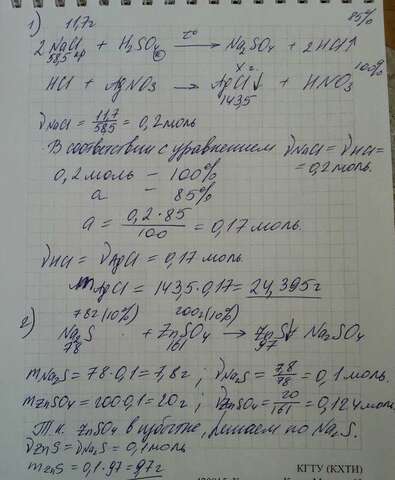 1) 11,7г 85%
2NaCl + H₂SO₄(к) —t°→ Na₂SO₄ + 2HCl↑
58,5
х г. 100%
HCl + AgNO₃ → AgCl↓ + HNO₃
143,5
νNaCl = 11,7/58,5 = 0,2 моль
В соответствии с уравнением νNaCl = νHCl =
= 0,2 моль.
0,2 моль – 100%
a – 85%
a = 0,2·85/100 = 0,17 моль.
νHCl = νAgCl = 0,17 моль.
mAgCl = 143,5·0,17 = 24,395г
78г (10%) 200г (10%)
2) Na₂S + ZnSO₄ → ZnS↓ Na₂SO₄
78 161 97
mNa₂S = 78·0,1 = 7,8г ; νNa₂S = 7,8/78 = 0,1 моль.
mZnSO₄ = 200·0,1 = 20г ; νZnSO₄ = 20/161 = 0,124 моль
Т.к. ZnSO₄ в избытке, решаем по Na₂S.
νZnS = νNa₂S = 0,1 моль
mZnS = 0,1·97 = 9,7г
КГТУ (КХТИ)